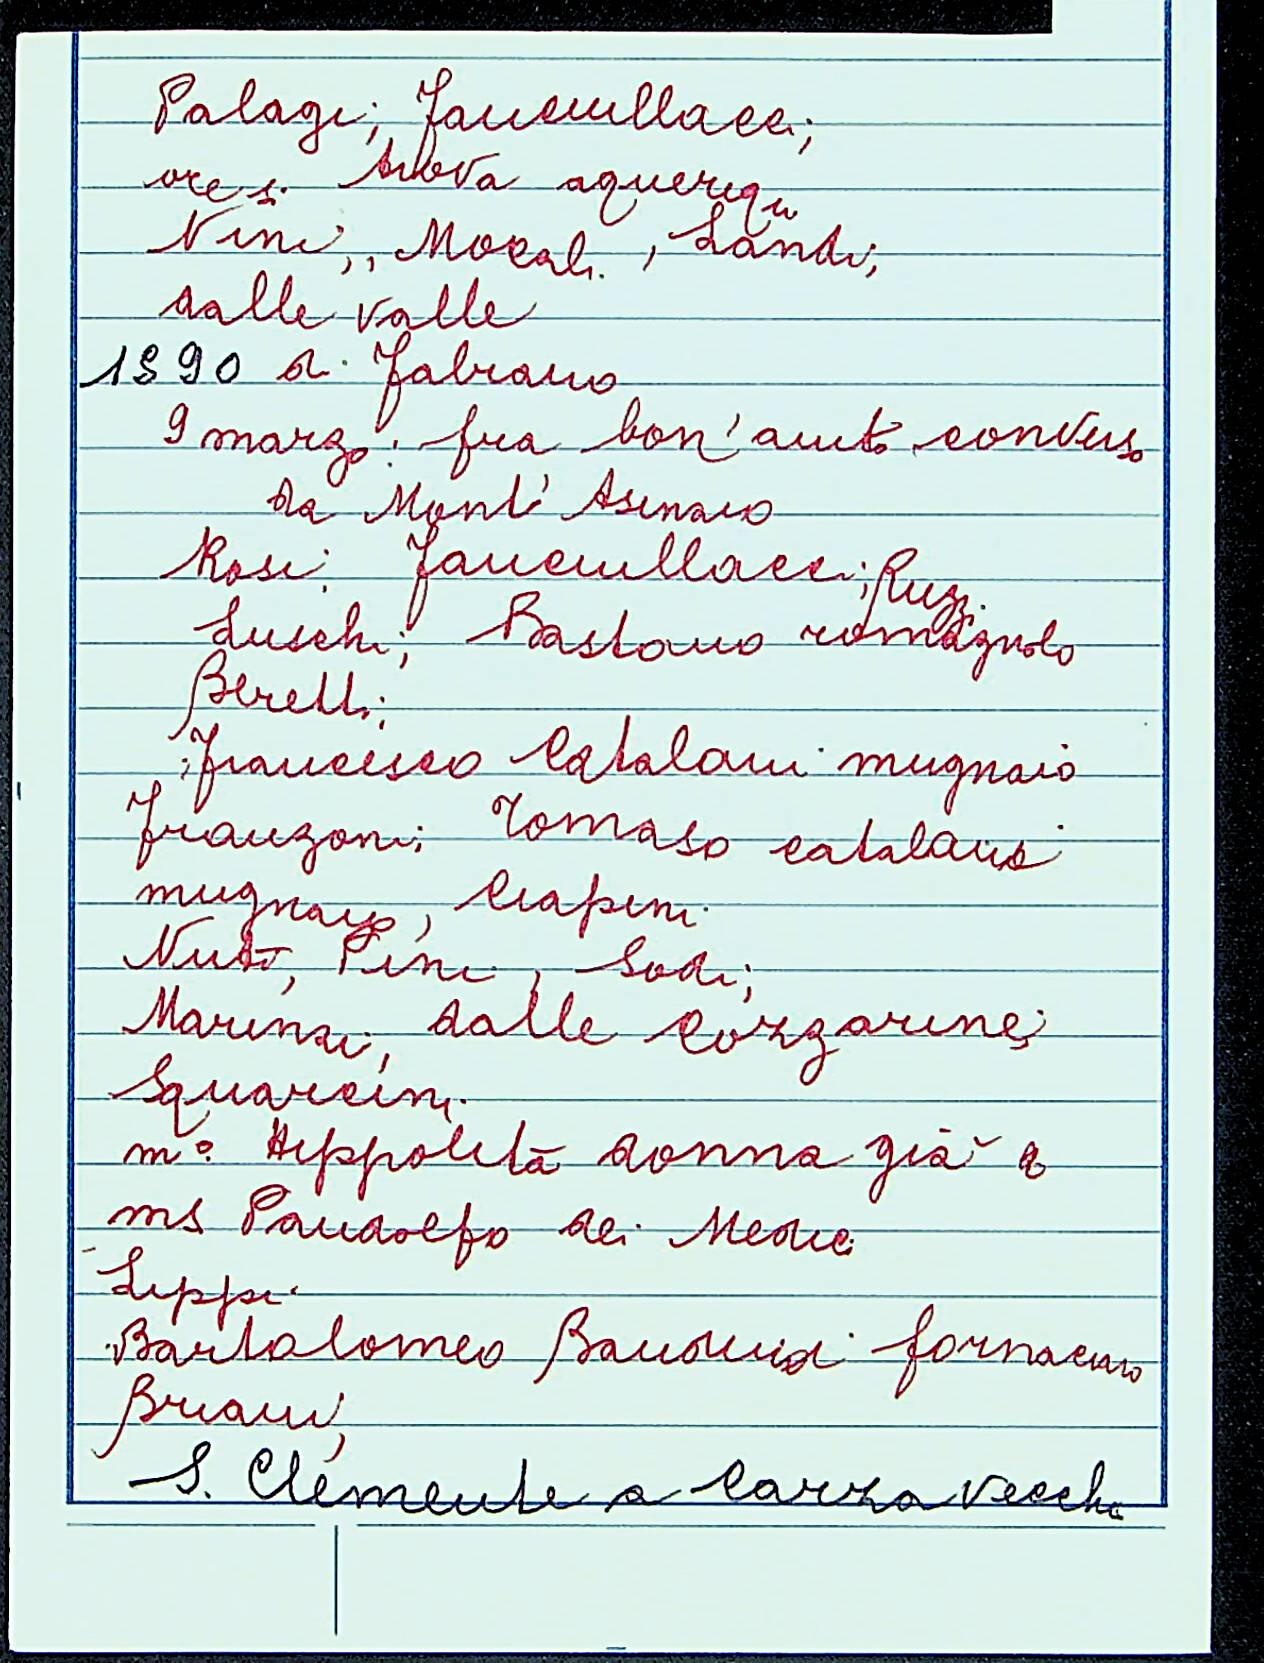 Palagi; Fanciullacci;
Nini;, Mocali, Landi;
dalle valle
1590 di Fabiano
9 marzo: fra bon'aiuto converso
da Monte Asinaio
Rosi; Fanciullacci; Ruzi
Luschi; Bastiano romagnolo
Beretti;
;Francesco Catalani mugnaio
Franzoni; Tomaso catalani
mugnaio, Ciapini
Nuti, Pini, Sodi;
Marinai, dalle Corzarine;
Squarcini
mª Hippolita donna già
ms Pandolfo dei Medici
Lippi
Bartolomeo fornaciaio
Briani,
S. Clemente a Carza vecchia